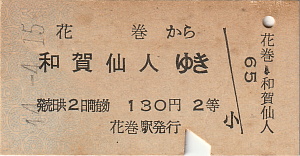 花巻から
和賀仙人ゆき
発売日共2日間有効 130円 2等
花巻駅発行
小
花巻➡和賀仙人
65